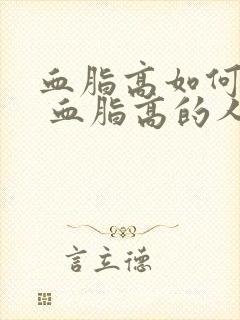 血脂高如何
血脂高的人
言立德